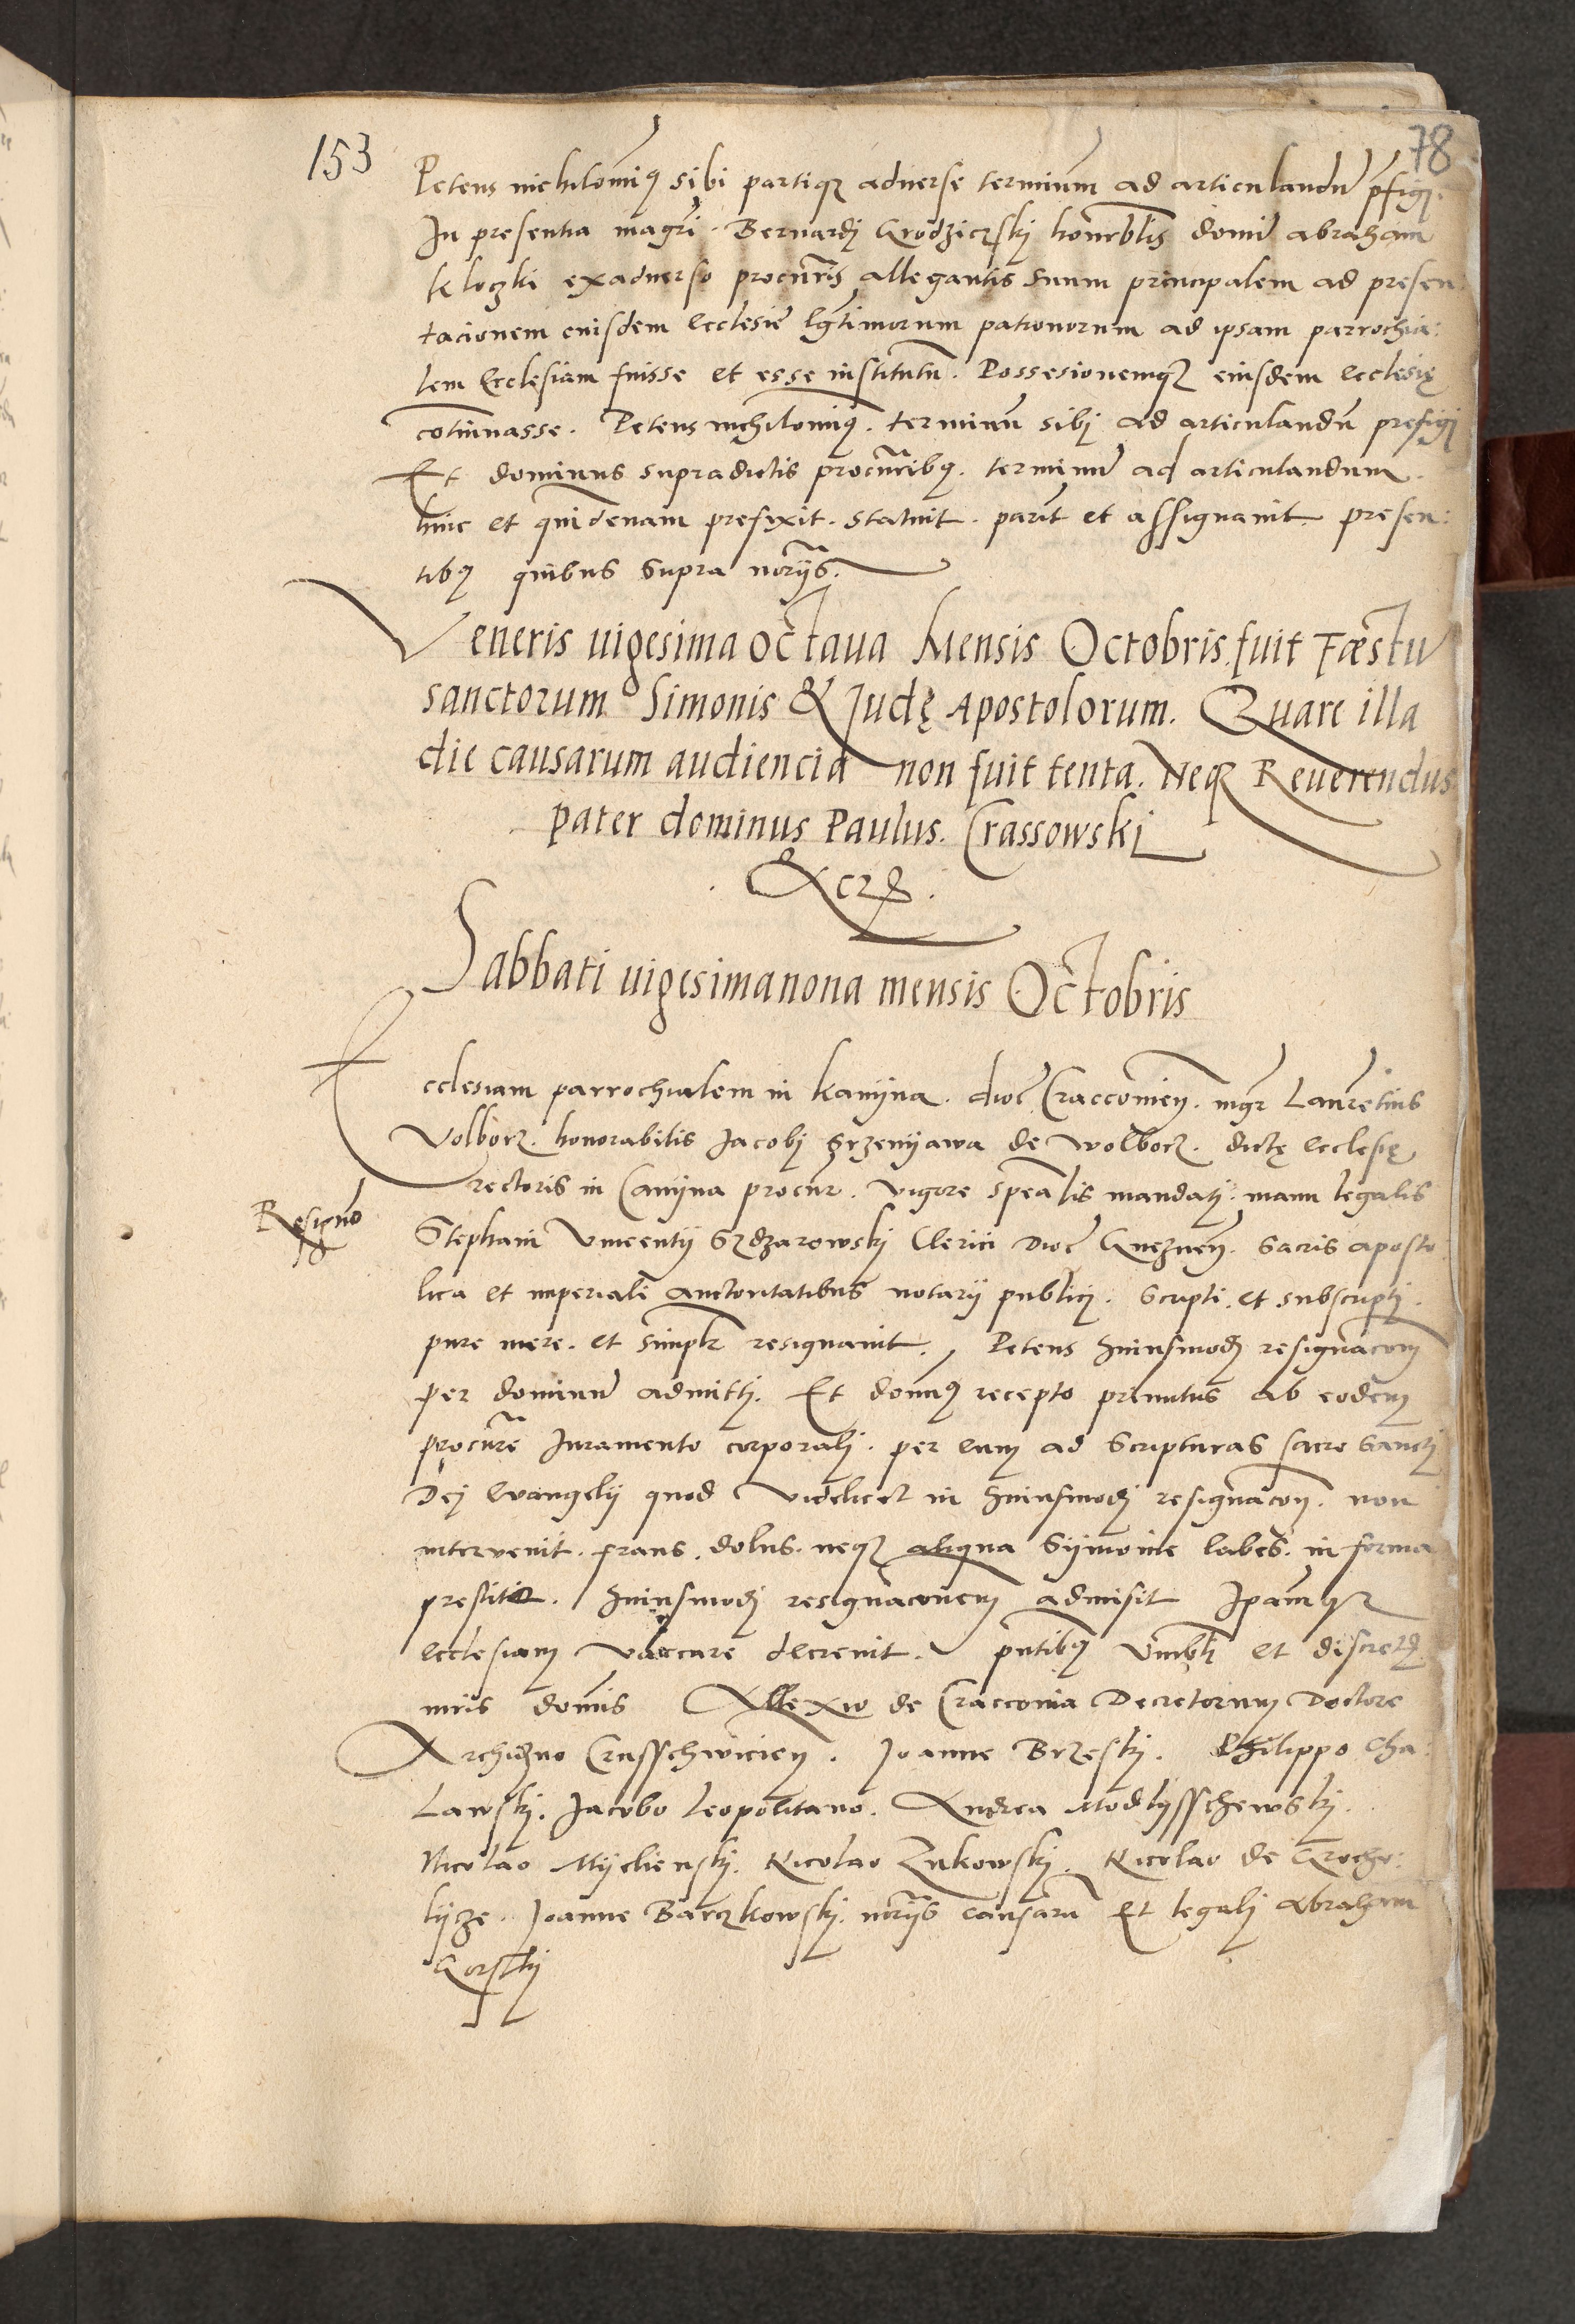 153
78
Petens nichilomiq sibi partiqz aduerse terminum ad articulandũ p̃figi.
In presentia magr̃i. Bernardi Grodzieczski honorablis domĩ abraham
kloczki exaduerso procur̃is allegantis suum principalem ad presen:
tacionem eiusdem ecclesie lg̃timorum patronorum ad ipsam parrochia:
lem Ecclesiam fuisse et esse institutũ. Possesionemqz eiusdem ecclesię
cõtinuasse. Petens nichilomiq. terminũ sibi ad articulandũ prefigi
Et dominus supradictis procur̃ibq. terminũ ad articulandum.
hinc et quindenam prefixit. statuit. parit et assignauit presen:
tibq quibus supra nor̃ijs.
Veneris uigesima octaua Mensis Octobris. fuit Fæstũ
sanctorum Simonis & Judę Apostolorum. Quare illa
die causarum audiencia non fuit tenta. Neqz Reuerendus
pater dominus Paulus. Crassowski
Sabbati uigesimanona mensis Octobris
Ecclesiam parrochialem in kamijna. dioc̃ Craccouieñ. mgr̃ Laurẽtius
Volborz. honorabilis Jacobi Srzenijawa de wolborz. dictę ecclesię
rectoris in Camijna procur̃. vigore spealis mandati. manu legalis
Resigno
Stephani Vincentij Szdzarowski Clerici Dioc̃ Gnezneñ. sacris aposto
lica et imperiali auctoritatibus notarij publici. scripti. et subscripti.
pure mere. et simplr̃ resignauit. Petens huiusmodi resignacom̃
per dominũ admitti. Et domiq recepto primitus ab eodem
procur̃e Juramento corporali. per eum ad scripturas sacro sancti
Dei Euangelij quod videlicet in huiusmodi resignacoñ. non
interuenit. fraus. dolus. neqz aliqua Sijmonie labes. in forma
prestito. huiusmodi resignaconem admisit Ipamqz
ecclesiam vaccare decreuit. pñtibq Vñbli et discretis
uiris domis Allexio de Cracconia Decretorum Doctore
Archidzno Crusschwicieñ. Joanne Brzeski. Philippo Cha:
lawski. Jacobo Leopolitano. Andrea Modlysschewski.
Nicolao Mijelienski. Nicolao Zukowski. Nicolao de Grocho:
lijcze. Joanne Barczkowski. nor̃ijs causarũ Et legali Abraham
Gorskij